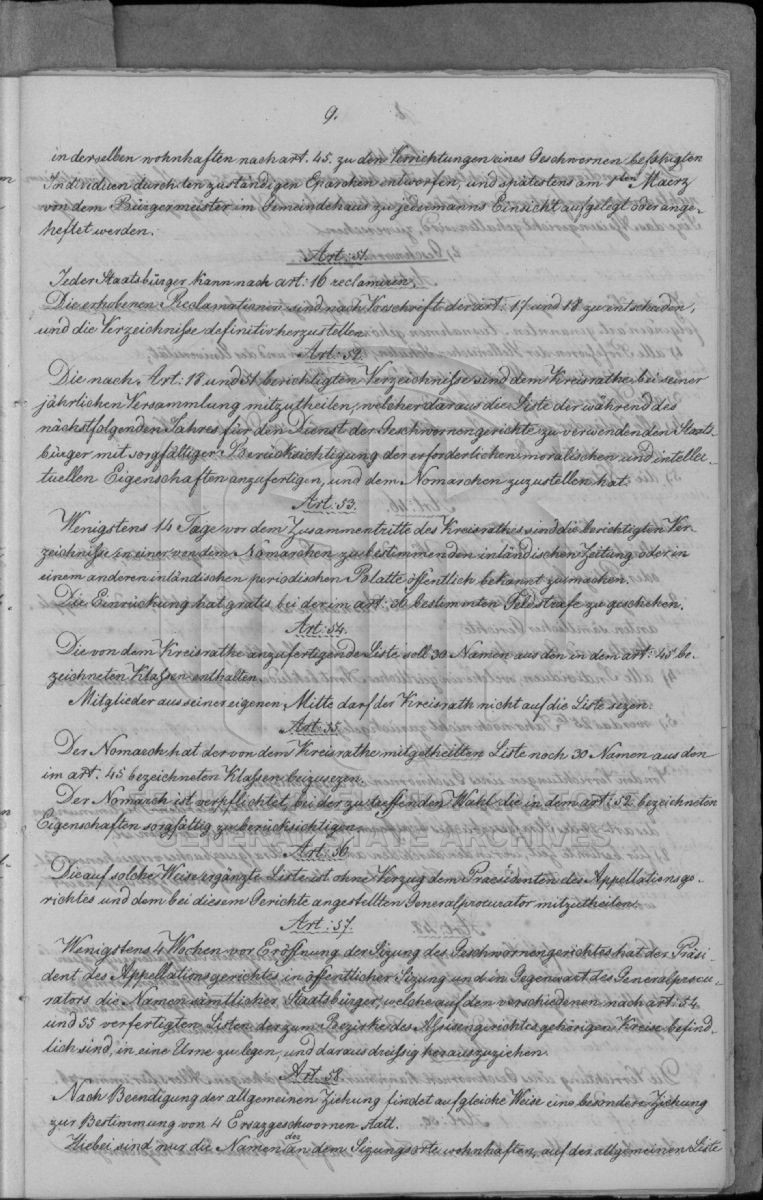 9.
in derselben wohnhaften nach art. 45. zu den Verrichtungen eines Geschwornen befähigten
Individuen durch den zuständigen Eparchen entworfen, und spätestens am 1ten Maerz
von dem Bürgermeister im Gemeindehaus zu jedermanns Einsicht aufgelegt oder ange-
heftet werden.
Art: 51.
Jeder Staatsbürger kann nach art: 16 reclamiren.
Die erhobenen Reclamationen sind nach Vorschrift der art: 17 und 18 zu entscheiden,
und die Verzeichniße definitiv herzustellen.
Art: 52.
Die nach Art: 18 und 51 berichtigten Verzeichniße sind dem Kreisrathe bei seiner
jährlichen Versammlung mitzutheilen, welcher daraus die Liste der während des
nächstfolgenden Jahres für den Dienst der Geschwornengerichte zu verwendenden Staats-
bürger mit sorgfältiger Berücksichtigung der erforderlichen moralischen und intellec-
tuellen Eigenschaften anzufertigen, und dem Nomarchen zuzustellen hat.
Art: 53.
Wenigstens 14 Tage vor dem Zusammentritte des Kreisrathes sind die berichtigten Ver-
zeichniße in einer von dem Nomarchen zu bestimmenden inländischen Zeitung oder in
einem anderen inländischen periodischen Blatte öffentlich bekannt zu machen.
Die Einrückung hat gratis bei der im art: bestimmten Geldstrafe zu geschehen.
Art: 54.
Die von dem Kreisrathe anzufertigende Liste soll 30 Namen aus den in dem art: 45 be-
zeichneten Klaßen enthalten.
Mitglieder aus seiner eigenen Mitte darf der Kreisrath nicht auf die Liste sezen.
Art: 55.
Der Nomarch hat der von dem Kreisrathe mitgetheilten Liste noch 30 Namen aus den
im art: 45 bezeichneten Klaßen beizusezen.
Der Nomarch ist verpflichtet, bei der zu treffenden Wahl die in dem art: 52 bezeichneten
Eigenschaften sorgfältig zu berücksichtigen.
GENERAL STATE ARCHIVES
Art: 56.
Die auf solche Weise ergänzte Liste ist ohne Verzug dem Praesidenten des Appellationsge-
richtes und dem bei diesem Gerichte angestellten Generalprocurator mitzutheilen.
Art: 57.
Wenigstens 4 Wochen vor Eröffnung der Sizung des Geschwornengerichtes hat der Präsi-
dent des Appellationsgerichtes in öffentlicher Sizung und in Gegenwart des Generalprocu-
rators die Namen sämtlicher Staatsbürger, welche auf den verschiedenen nach art: 54
und 55 verfertigten Listen der zum Bezirke des Assisengerichtes gehörigen Kreise befind-
lich sind, in eine Urne zu legen, und daraus dreißig herauszuziehen.
Art: 58.
Nach Beendigung der allgemeinen Ziehung findet auf gleiche Weise eine besondere Ziehung
zur Bestimmung von 4 Ersazgeschwornen statt.
Hiebei sind nur die Namen der an dem Sizungsorte wohnhaften, auf der allgemeinen Liste